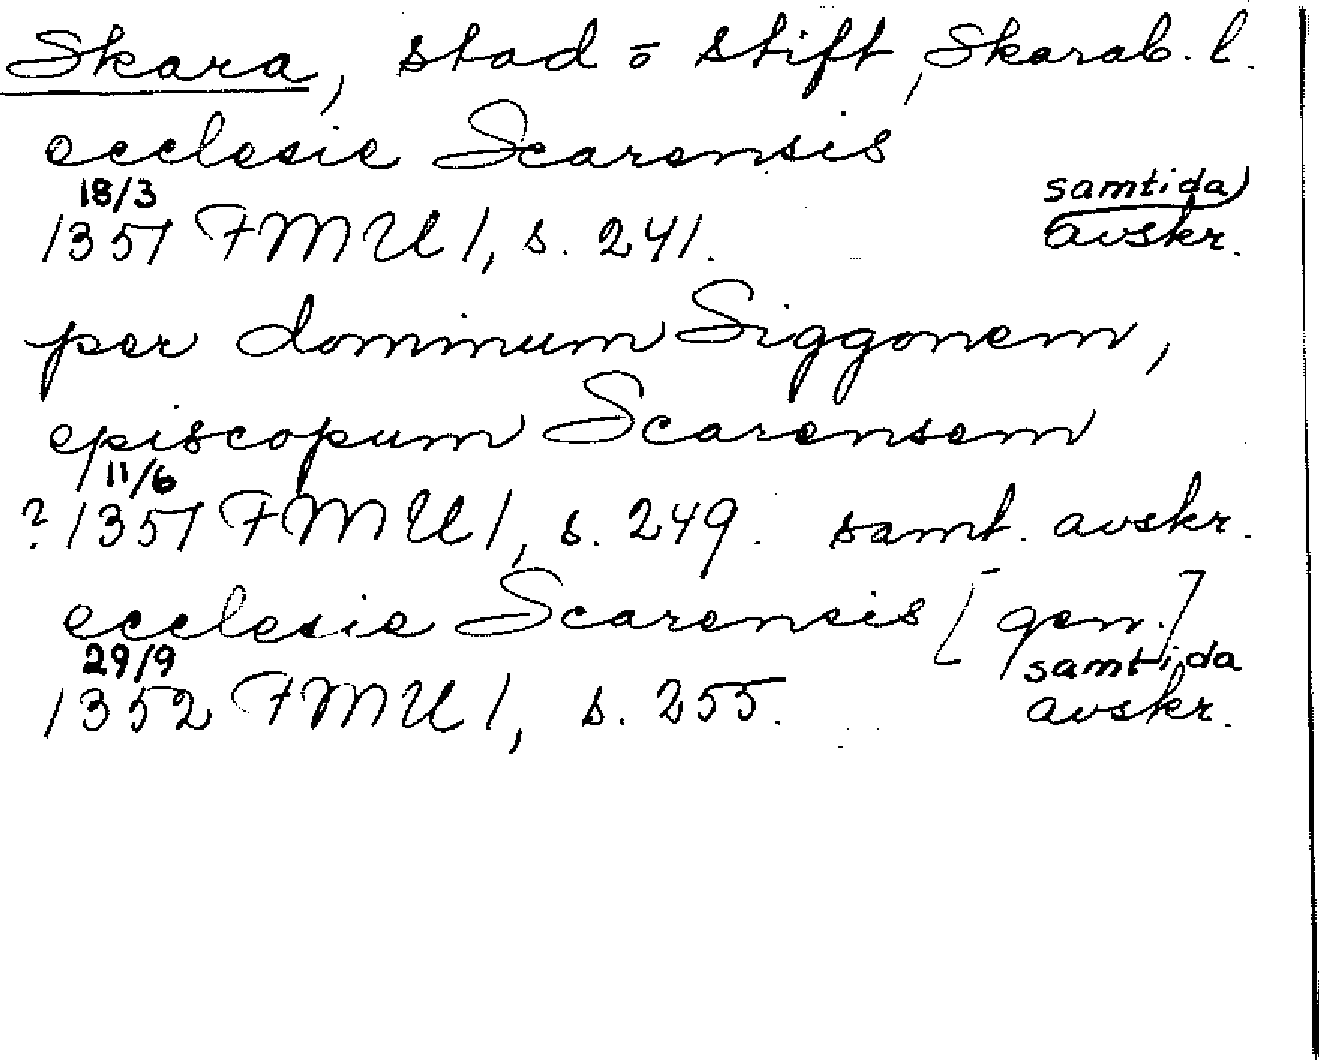 Skara, stad o stift, Skarab. l.
ecclesie Scarensis
18/3 samtida
1351 FMU 1, s. 241. avskr.
per dominum Siggonem,
episcopum Scarensem
11/6
? 1351 FMU 1, s. 249. samt. avskr.
ecclesie Scarensis [gen.]
29/9 samtida
1352 FMU 1, s. 255. avskr.